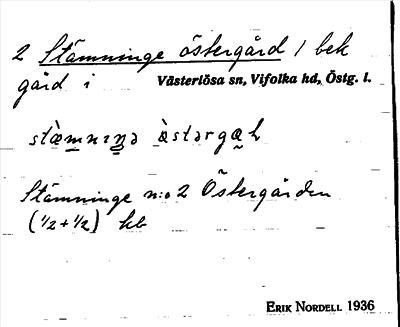 2 Stämninge östergård 1 bek
gård i Västerlösa sn, Vifolka hd, Östg. l.
Stämninge n:o 2 Östergården
(1/2+1/2) kb
ERIK NORDELL 1936